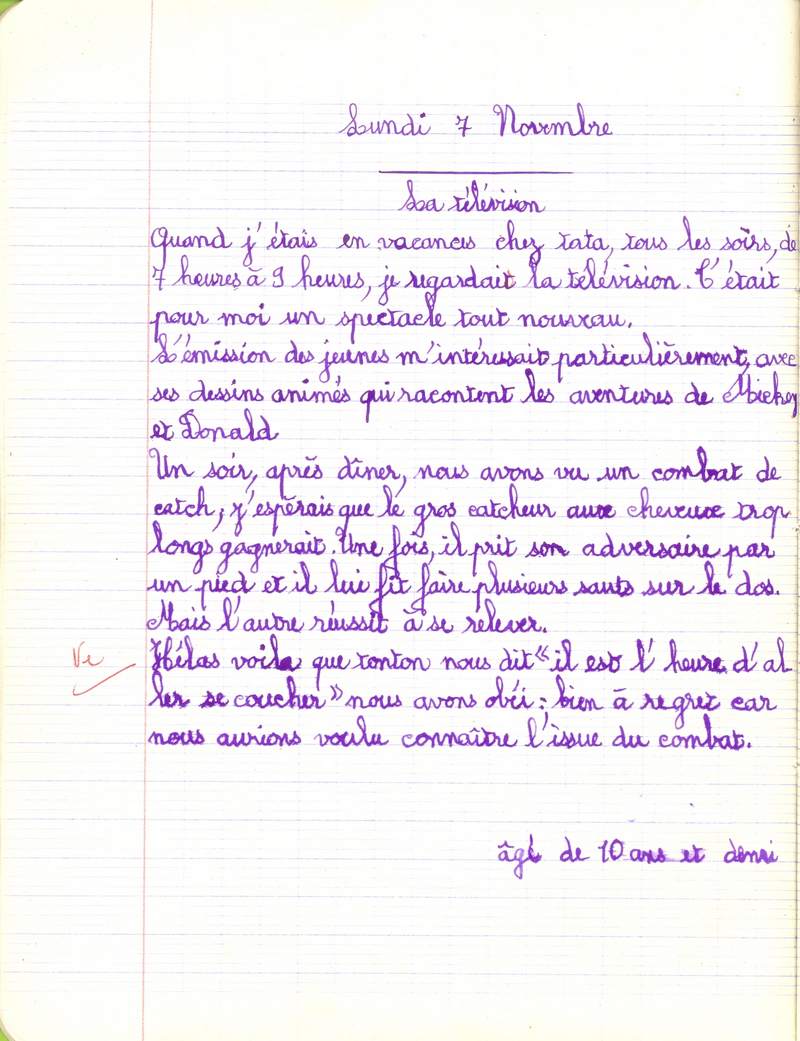 Lundi 7 Novembre
La télévision
Quand j'étais en vacances chez tata, tous les soirs, de
7 heures à 9 heures, je regardait la télévision. C'était
pour moi un spectacle tout nouveau.
L'émission des jeunes m'intéressait particulièrement, avec
ses dessins animés qui racontent les aventures de Mickey
et Donald
Un soir, après dîner, nous avons vu un combat de
catch; j'espérais que le gros catcheur aux cheveux trop
longs gagnerait. Une fois, il prit son adversaire par
un pied et il lui fit faire plusieurs sauts sur le dos.
Mais l'autre réussit à se relever.
Ve
Hélas voila que tonton nous dit « il est l'heure d'al
ler se coucher » nous avons obéi : bien à regret car
nous aurions voulu connaître l'issue du combat.
âgé de 10 ans et demi